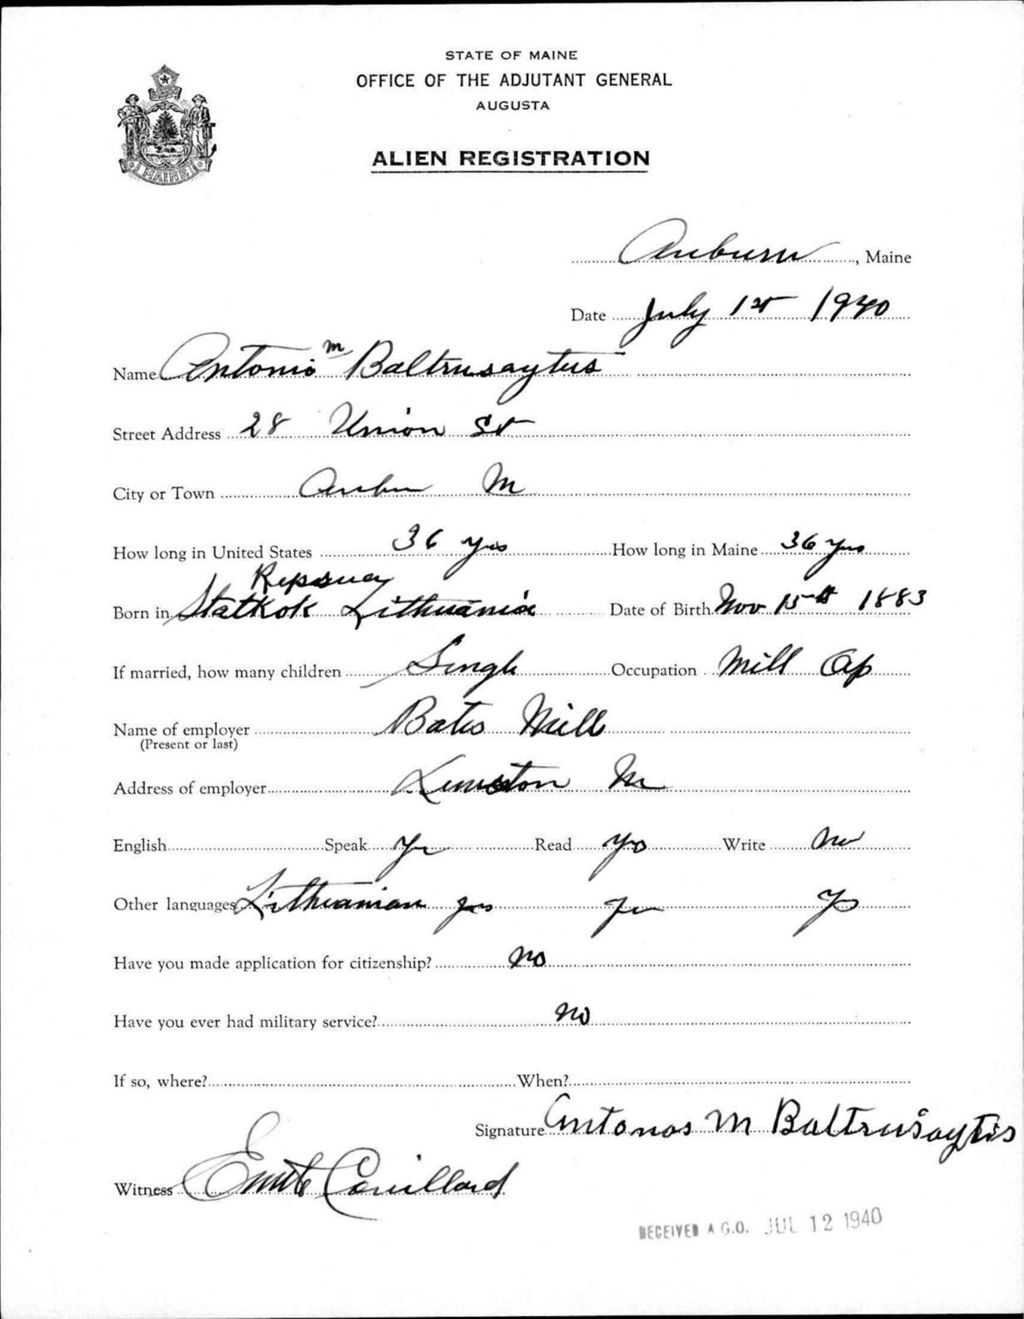 STATE OF MAINE
OFFICE OF THE ADJUTANT GENERAL
AUGUSTA
MAINE
ALIEN REGISTRATION
Auburn, Maine
Date July 1st 1940
Name Antonio M Baltrusaytus
Street Address 28 Union St
City or Town Auburn M
How long in United States 36 yrs How long in Maine 36 yrs
Born in Lithuania Date of Birth Nov 15th 1883
If married, how many children Single Occupation Mill Op
Name of employer Bates Mill
(Present or last)
Address of employer Lewiston Me
English Speak Yes Read Yes Write No
Other languages Lithuanian yes yes yes
Have you made application for citizenship? no
Have you ever had military service? no
If so, where? When?
Signature Antonas M Baltrušaytis
Witness Emile Couillard
RECEIVED A.G.O. JUL 12 1940